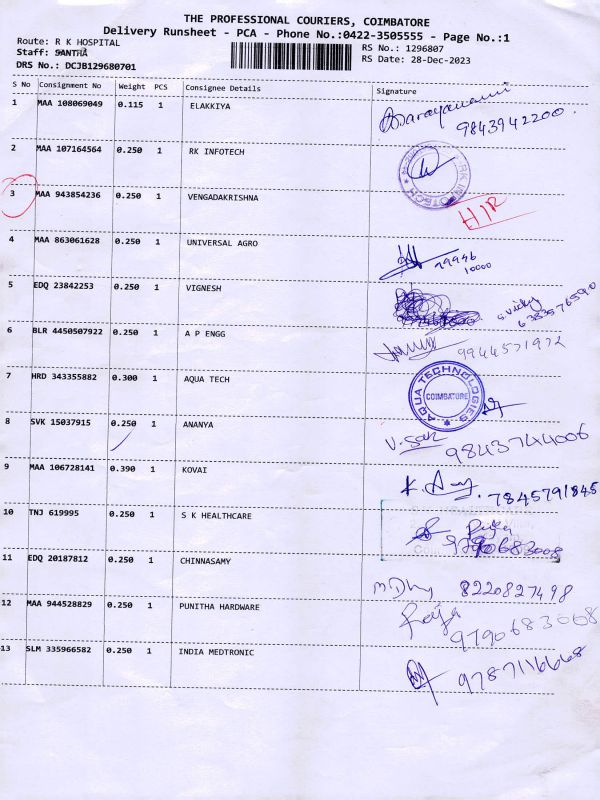 THE PROFESSIONAL COURIERS, COIMBATORE
Delivery Runsheet - PCA - Phone No.:0422-3505555 - Page No.:1
Route: R K HOSPITAL
RS No.: 1296807
Staff: SANTHA
RS Date: 28-Dec-2023
DRS No.: DCJB129680701
S No Consignment No Weight PCS Consignee Details Signature
1 MAA 108069049 0.115 1 ELAKKIYA
9843942200.
2 MAA 107164564 0.250 1 RK INFOTECH RK INFOTECH
3 MAA 943854236 0.250 1 VENGADAKRISHNA
4 MAA 863061628 0.250 1 UNIVERSAL AGRO 79946
10000
5 EDQ 23842253 0.250 1 VIGNESH S. Vicky
6383576590
6 BLR 4450507922 0.250 1 A P ENGG
9944571972
7 HRD 343355882 0.300 1 AQUA TECH AQUA TECHNOLOGIES
COIMBATORE
8 SVK 15037915 0.250 1 ANANYA
9843744006
9 MAA 106728141 0.390 1 KOVAI
7845791845
10 TNJ 619995 0.250 1 S K HEALTHCARE
9790683008
11 EDQ 20187812 0.250 1 CHINNASAMY
8220827498
12 MAA 944528829 0.250 1 PUNITHA HARDWARE
9790683008
13 SLM 335966582 0.250 1 INDIA MEDTRONIC
9787116668